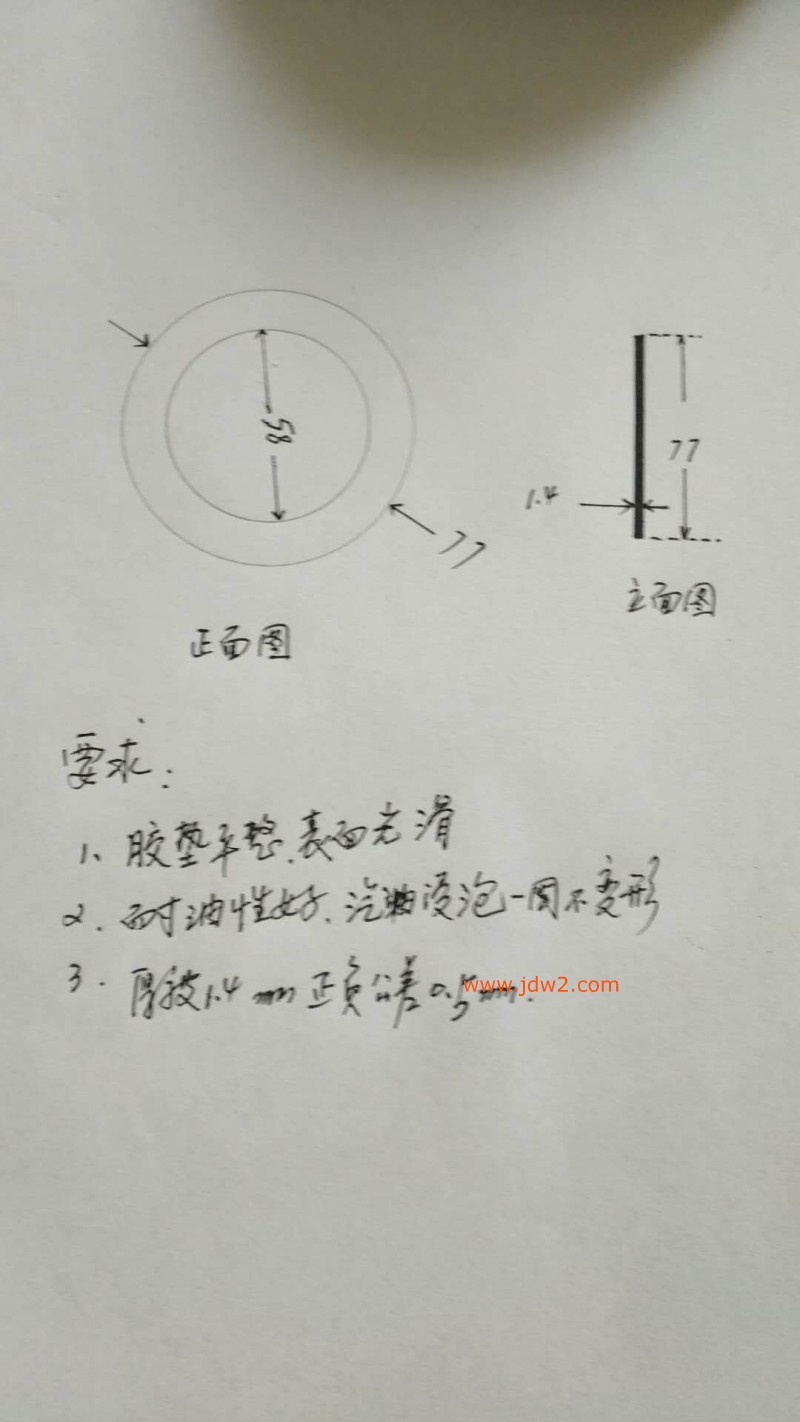 58
77
1.4
77
正面图
立面图
要求:
1、胶垫平整、表面光滑
2. 耐油性好、汽油浸泡一周不变形
3. 厚度1.4mm正负公差0.5mm.
www.jdw2.com